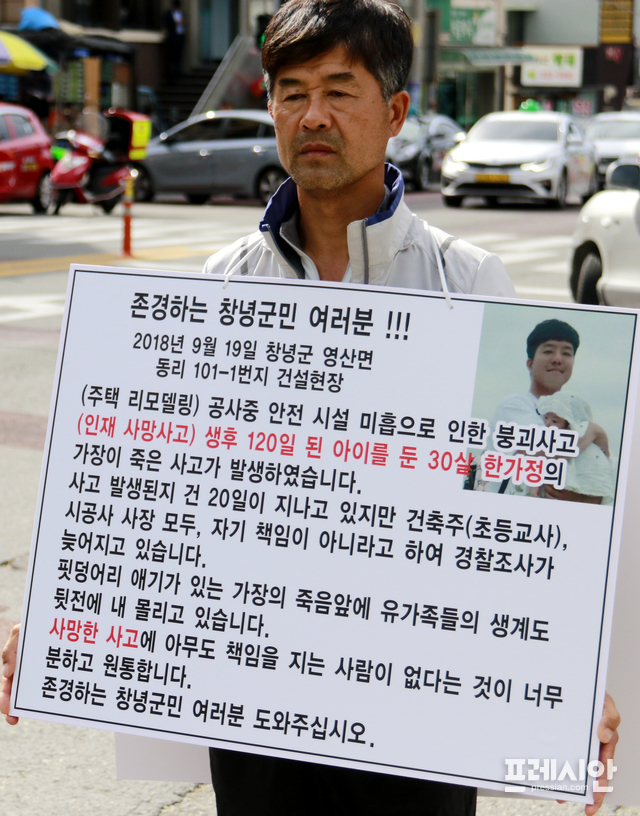 존경하는 창녕군민 여러분 !!!
2018년 9월 19일 창녕군 영산면
동리 101-1번지 건설현장
(주택 리모델링) 공사중 안전 시설 미흡으로 인한 붕괴사고
(인재 사망사고) 생후 120일 된 아이를 둔 30살 한가정의
가장이 죽은 사고가 발생하였습니다.
사고 발생된지 건 20일이 지나고 있지만 건축주(초등교사),
시공사 사장 모두, 자기 책임이 아니라고 하여 경찰조사가
늦어지고 있습니다.
핏덩어리 애기가 있는 가장의 죽음앞에 유가족들의 생계도
뒷전에 내 몰리고 있습니다.
사망한 사고에 아무도 책임을 지는 사람이 없다는 것이 너무
분하고 원통합니다.
존경하는 창녕군민 여러분 도와주십시오.
프레시안
pressian.com